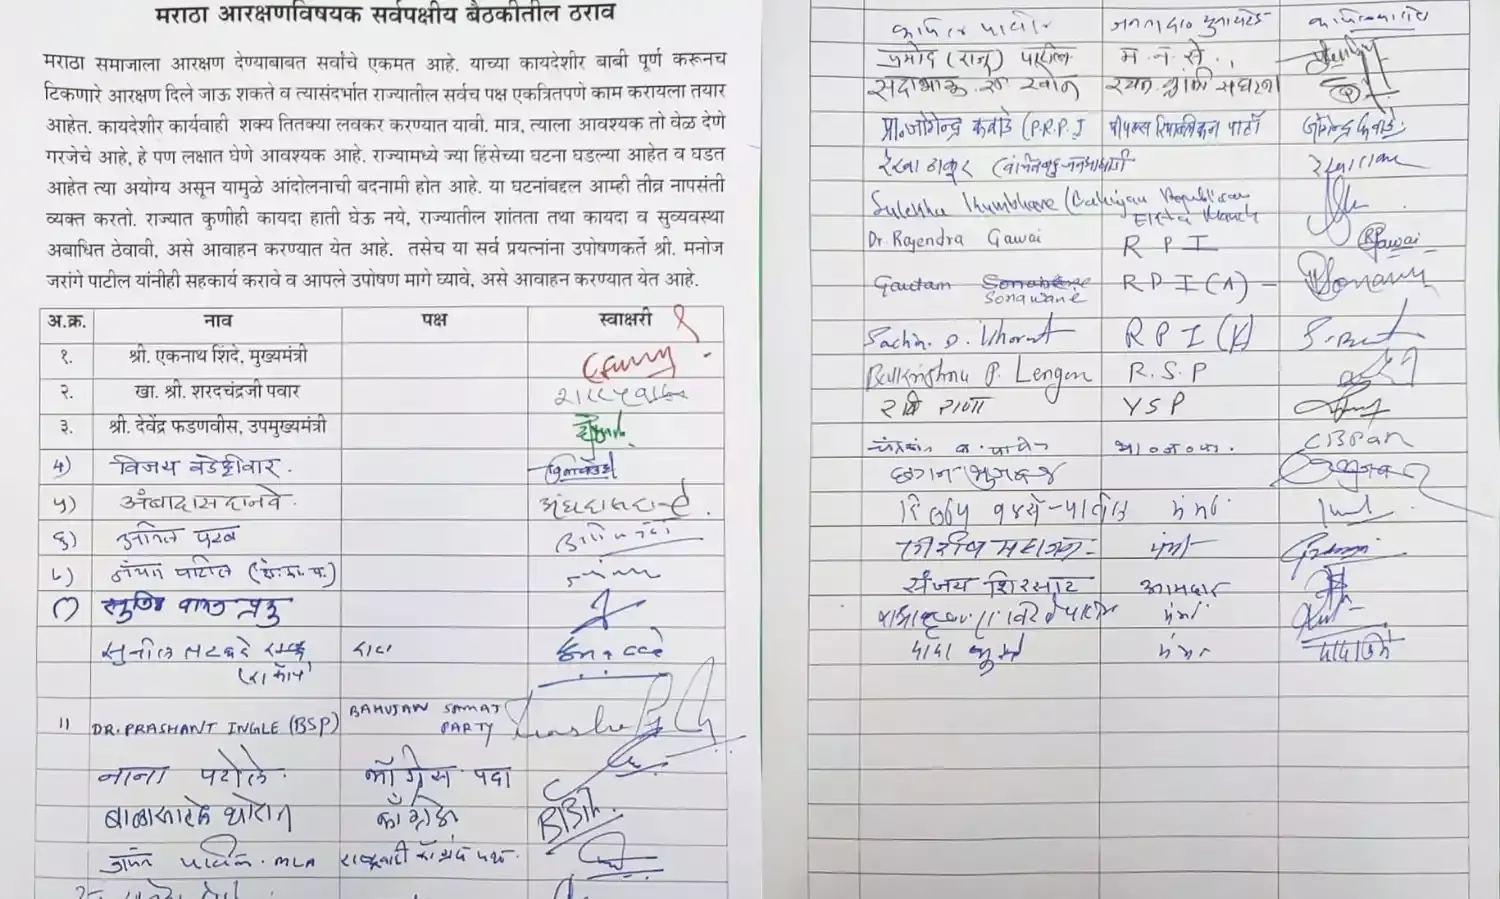 मराठा आरक्षणविषयक सर्वपक्षीय बैठकीतील ठराव
मराठा समाजाला आरक्षण देण्याबाबत सर्वांचे एकमत आहे. याच्या कायदेशीर बाबी पूर्ण करूनच
टिकणारे आरक्षण दिले जाऊ शकते व त्यासंदर्भात राज्यातील सर्वच पक्ष एकत्रितपणे काम करायला तयार
आहेत. कायदेशीर कार्यवाही शक्य तितक्या लवकर करण्यात यावी. मात्र, त्याला आवश्यक तो वेळ देणे
गरजेचे आहे, हे पण लक्षात घेणे आवश्यक आहे. राज्यामध्ये ज्या हिंसेच्या घटना घडल्या आहेत व घडत
आहेत त्या अयोग्य असून यामुळे आंदोलनाची बदनामी होत आहे. या घटनांबद्दल आम्ही तीव्र नापसंती
व्यक्त करतो. राज्यात कुणीही कायदा हाती घेऊ नये, राज्यातील शांतता तथा कायदा व सुव्यवस्था
अबाधित ठेवावी, असे आवाहन करण्यात येत आहे. तसेच या सर्व प्रयत्नांना उपोषणकर्ते श्री. मनोज
जरांगे पाटील यांनीही सहकार्य करावे व आपले उपोषण मागे घ्यावे, असे आवाहन करण्यात येत आहे.
अ.क्र. नाव पक्ष स्वाक्षरी
१. श्री. एकनाथ शिंदे, मुख्यमंत्री
२. खा. श्री. शरदचंद्रजी पवार
३. श्री. देवेंद्र फडणवीस, उपमुख्यमंत्री
४) विजय वडेट्टीवार.
५) अंबादास दानवे.
६) अनिल परब
७)
८)
सुनील तटकरे
11 DR. PRASHANT INGLE (BSP) BAHUJAN SAMAJ
PARTY
नाना पटोले. काँग्रेस पक्ष
बाळासाहेब थोरात काँग्रेस
जयंत पाटील. MLA राष्ट्रवादी काँग्रेस पक्ष.
कपिल पाटील जनता दल युनायटेड
प्रमोद (राजू) पाटील म. न. से.
सदाभाऊ रा. खोत रयत क्रांती संघटना
प्रा. जोगेन्द्र कवाडे (P.R.P.) पीपल्स रिपब्लिकन पार्टी जोगेन्द्र कवाडे
रेखा ठाकूर (वंचित बहुजन आघाडी)
Sulekha Kumbhare (Bahujan Republican
Ekta Manch
Dr. Rajendra Gawai R P I RGawai
Gautam Sonawane R P I (A) -
Sonawane
Sachin. D. Kharat R P I (K)
Balkrishna P. Lengare R.S.P
रवि राणा YSP
चंद्रकांत ब. पाटील भा.ज.प.
छगन भुजबळ
दिलीप वळसे-पाटील मंत्री
गिरीष महाजन मंत्री
संजय शिरसाट आमदार
राधाकृष्ण विखे पाटील मंत्री
दादा भुसे मंत्री